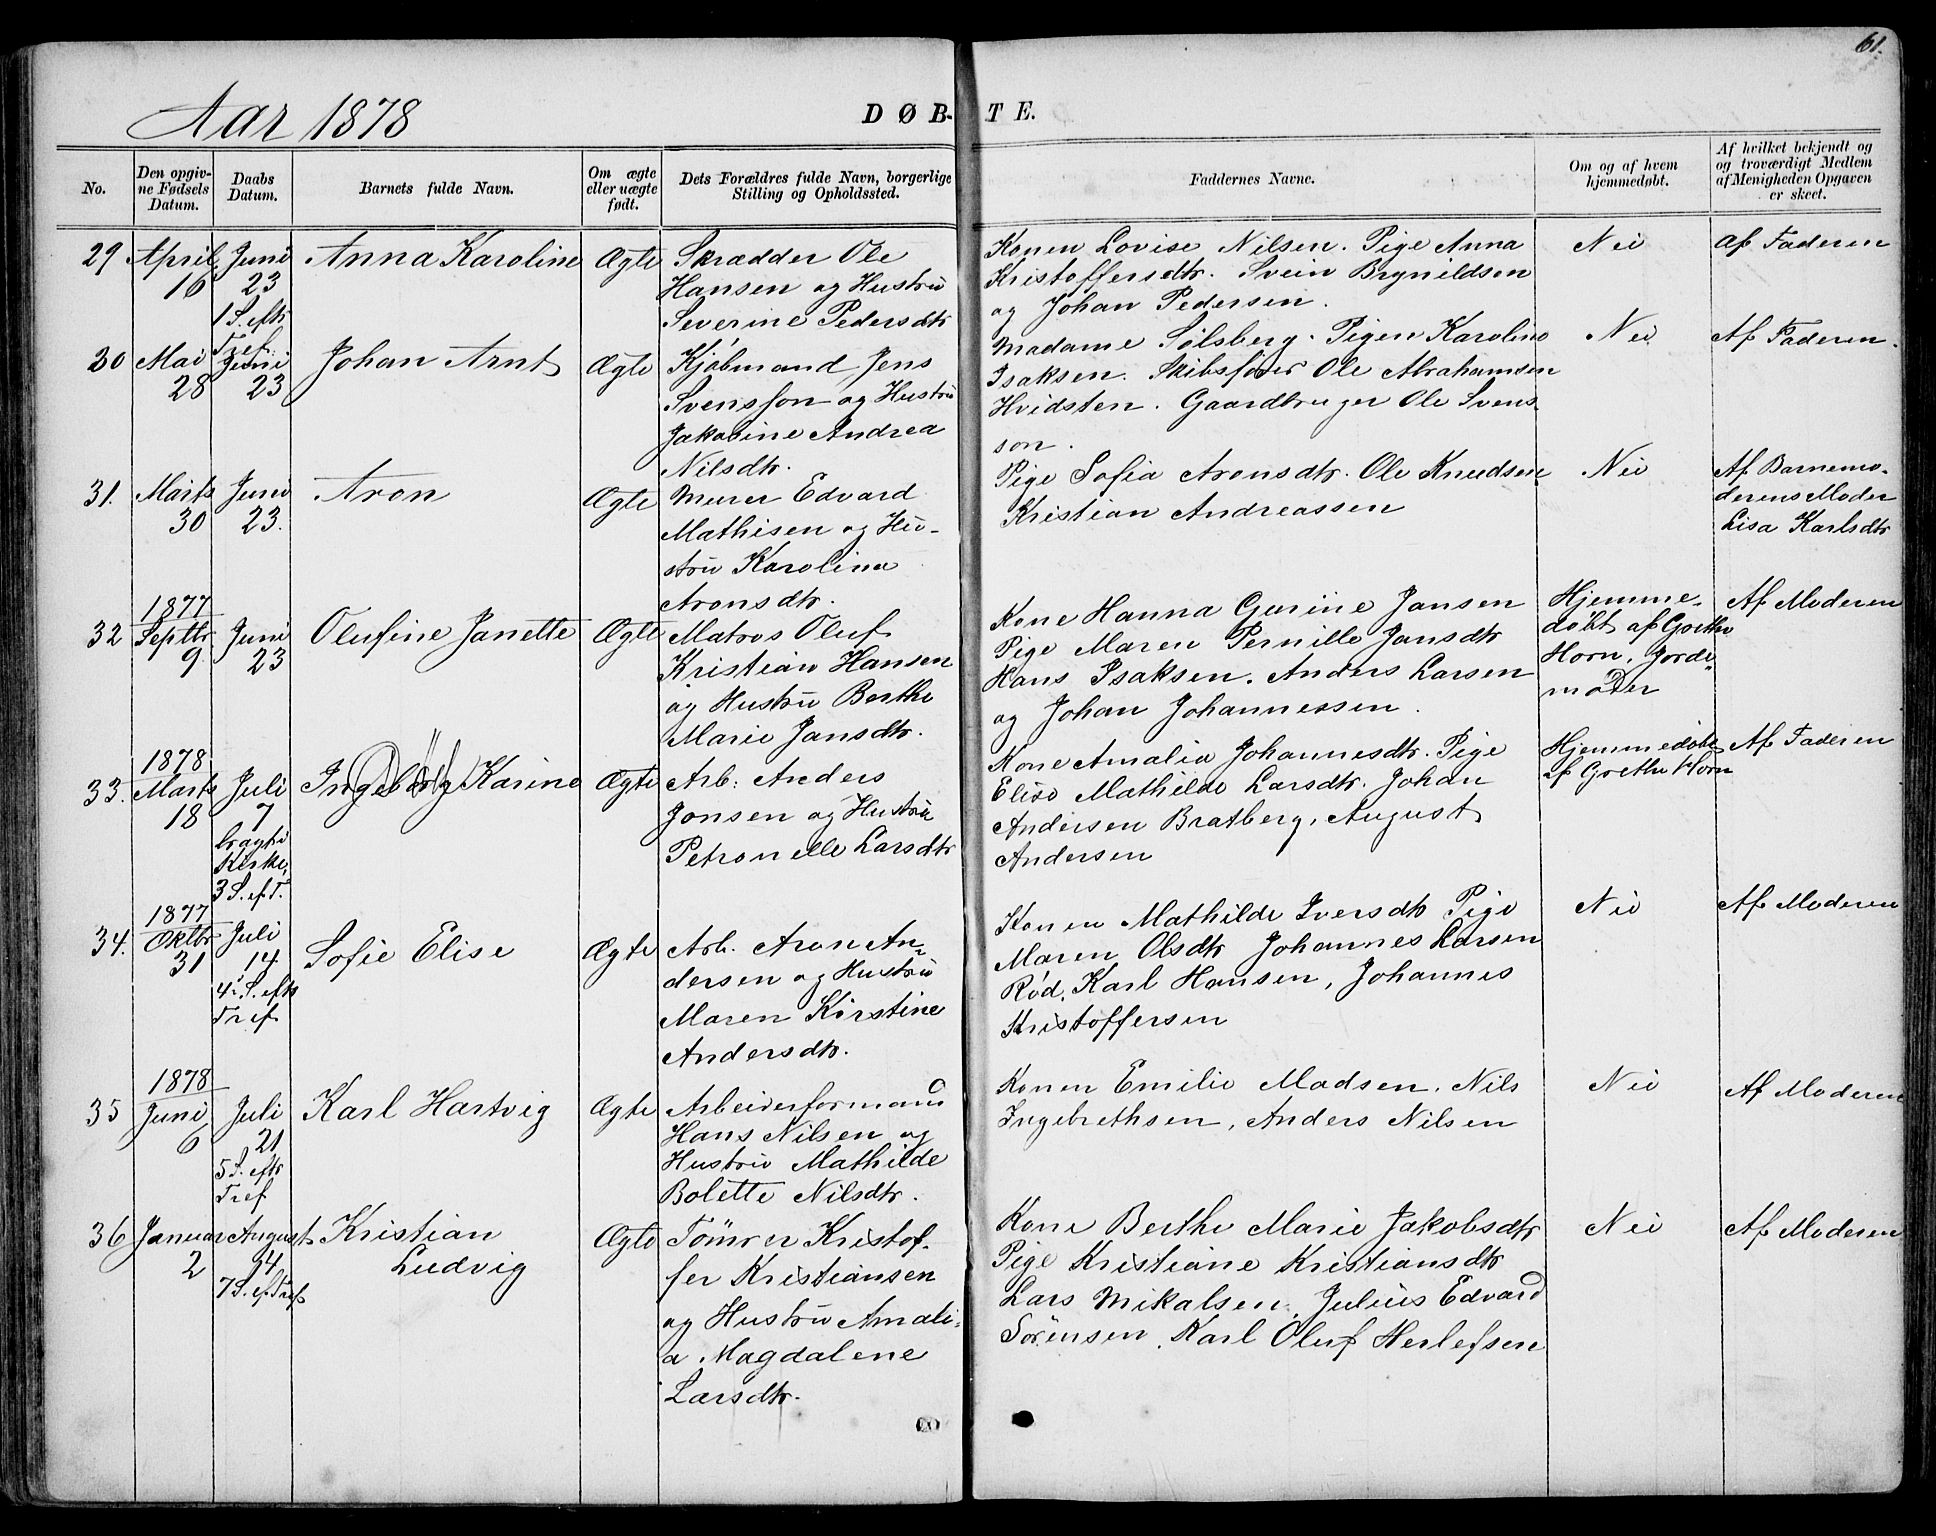 61.
Aar 1878
DØBTE.
No.
Den opgivne Fødsels Datum.
Daabs Datum.
Barnets fulde Navn.
Om ægte eller uægte født.
Dets Forældres fulde Navn, borgerlige Stilling og Opholdssted.
Faddernes Navne.
Om og af hvem hjemmedøbt.
Af hvilket bekjendt og og troværdigt Medlem af Menigheden Opgaven er skeet.
29
April
16
Juni
23
1 S. eftr
Tref.
Anna Karoline
Ægte
Skrædder Ole
Hansen og Hustru
Severine Pedersdtr
Konen Lovise Nilsen. Pige Anna
Kristoffersdtr. Svein Brynildsen
og Johan Pedersen.
Nei
Af Faderen
30
Mai
28
Juni
23
Johan Arnt
Ægte
Kjøbmand Jens
Svensson og Hustru
Jakobine Andrea
Nilsdtr.
Madame Solsberg. Pigen Karoline
Isaksen. Skibsfører Ole Abrahamsen
Hvidsten. Gaardbruger Ole Svens-
son.
Nei
Af Faderen.
31.
Marts
30
Juni
23.
Aron
Ægte
Murer Edvard
Mathisen og Hu-
stru Karolina
Aronsdtr.
Pige Sofia Aronsdtr. Ole Knudsen
Kristian Andreassen
Nei
Af Barnemo-
derens Moder
Lisa Karlsdtr
32
1877
Septbr
9
Juni
23
Olufine Janette
Ægte
Matros Oluf
Kristian Hansen
og Hustru Berthe
Marie Jansdtr.
Kone Hanna Gurine Jansen
Pige Maren Pernille Jansdtr
Hans Isaksen. Anders Larsen
og Johan Johannessen.
Hjemme-
døbt af Grethe
Horn, Jorde-
moder
Af Moderen
33.
1878
Marts
18
Juli
7
bragt i
Kirke,
3 S. ef. T.
Ingeborg Karine
Død
Ægte
Arb: Anders
Jonsen og Hustru
Petronelle Larsdtr
Kone Amalia Johannesdtr. Pige
Elise Mathilde Larsdtr. Johan
Andersen Bratberg, August
Andersen
Hjemmedøbt
af Grethe Horn
Af Faderen
34.
1877
Oktbr
31
Juli
14
4 S. eftr
Tref
Sofie Elise
Ægte
Arb. Aron An-
dersen og Hustru
Maren Kirstine
Andersdtr.
Konen Mathilde Iversdtr Pige
Maren Olsdtr Johannes Larsen
Rød, Karl Hansen, Johannes
Kristoffersen
Nei
Af Moderen
35
1878
Juni
6
Juli
21
5 S. eftr
Tref
Karl Hartvig
Ægte
Arbeiderformand
Hans Nilsen og
Hustru Mathilde
Bolette Nilsdtr.
Konen Emilie Madsen, Nils
Ingebrethsen, Anders Nilsen
Nei
Af Moderen
36
Januar
2
August
4
7 S. ef. Tref
Kristian
Ludvig
Ægte
Tømrer Kristof-
fer Kristiansen
og Hustru Amali-
a Magdalene
Larsdtr.
Kone Berthe Marie Jakobsdtr
Pige Kristiane Kristiansdtr
Lars Mikalsen, Julius Edvard
Sørensen, Karl Oluf Herlefsen
Nei
Af Moderen